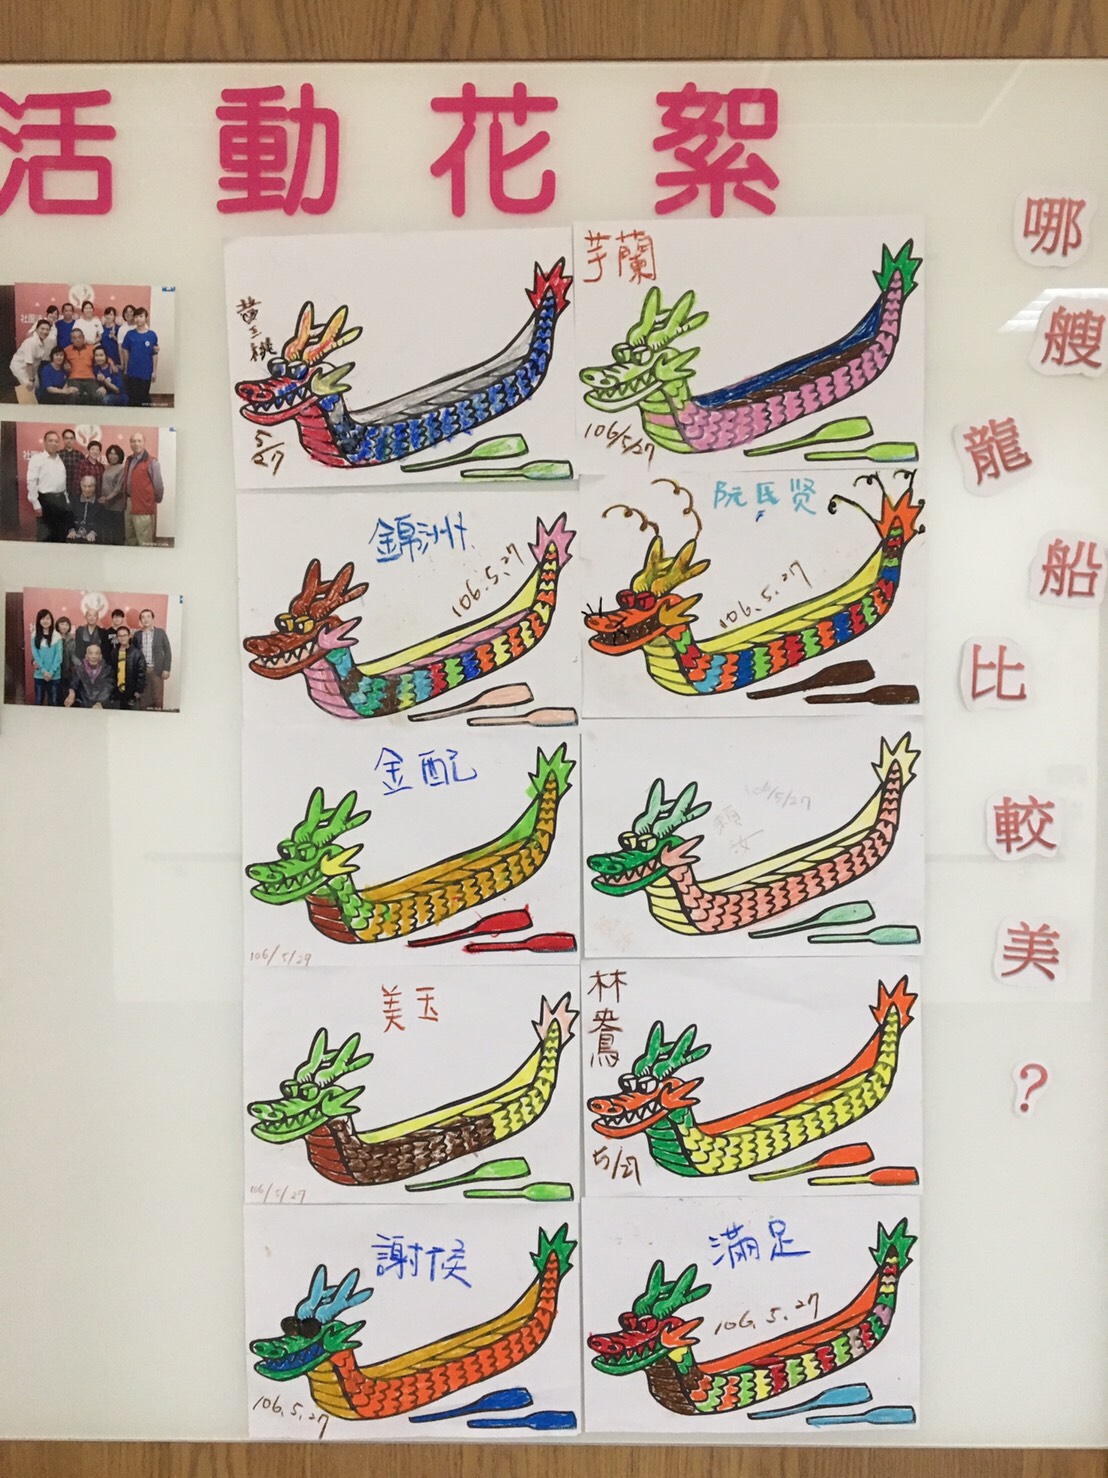 活動花絮
哪艘龍船比較美？
黃玉桃
5/27
芋蘭
106/5/27
錦洲
106.5.27
阮氏贤
106.5.27
金配
106/5/29
106/5/27
美玉
106/5/27
林鴦
5/27
謝侯
106.5.27
滿足
106.5.27